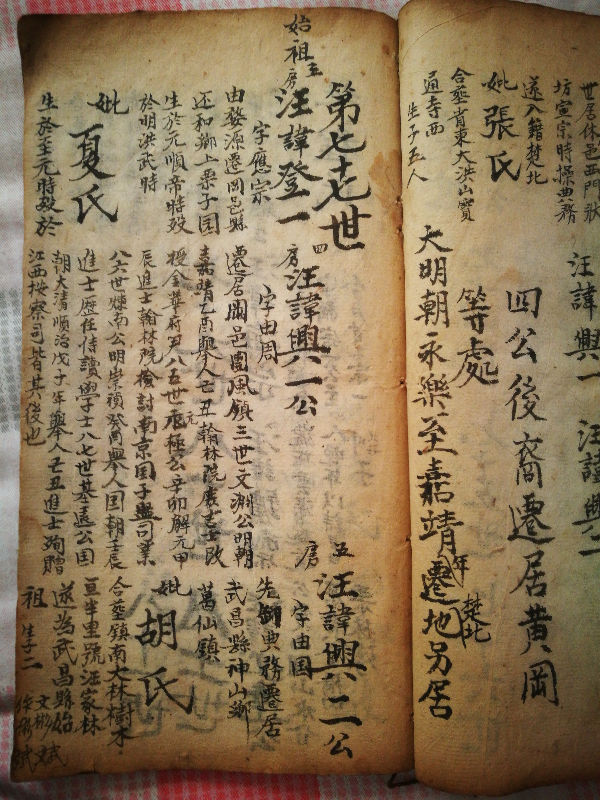 世居休邑西門猷
坊宣宗時掃典務
遂入籍楚北
妣張氏
合塟省東大洪山寶
通寺西
生子五人
汪諱興二
汪諱興一
四公後裔遷居黃岡
等處 楚北
大明朝永樂至嘉靖年遷地另居
第七十七世
始祖 五房 汪諱登一
字應宗
由婺源遷岡邑縣
还和鄉上栗子国
生於元順帝時殁
於明洪武時
妣夏氏
生於至元時殁於
四房 汪諱興一公
字由周
遷居岡邑團風鎮三世文淵公明朝
嘉靖乙酉舉人己丑翰林院庶吉士改
授金華府 八五世 極公辛卯解元甲
辰進士翰林院檢討南京国子監司業
八六世煇南公明崇禎癸酉舉人国朝壬辰
進士歷任侍讀學士八七世基遠公国
朝大清順治戊子年舉人己丑進士 贈
江西按察司皆其後也
五房 汪諱興二公
字由国
先 典務遷居
武昌縣神山鄉
葛仙鎮
妣胡氏
合塟鎮南大林樹木
亘半里號汪家林
遂为武昌縣始
祖 生子二
文彬 文斌